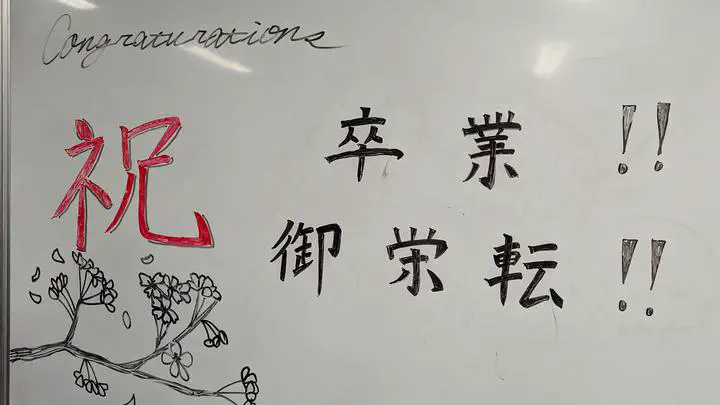 Congraturations
祝
卒業!!
御栄転!!